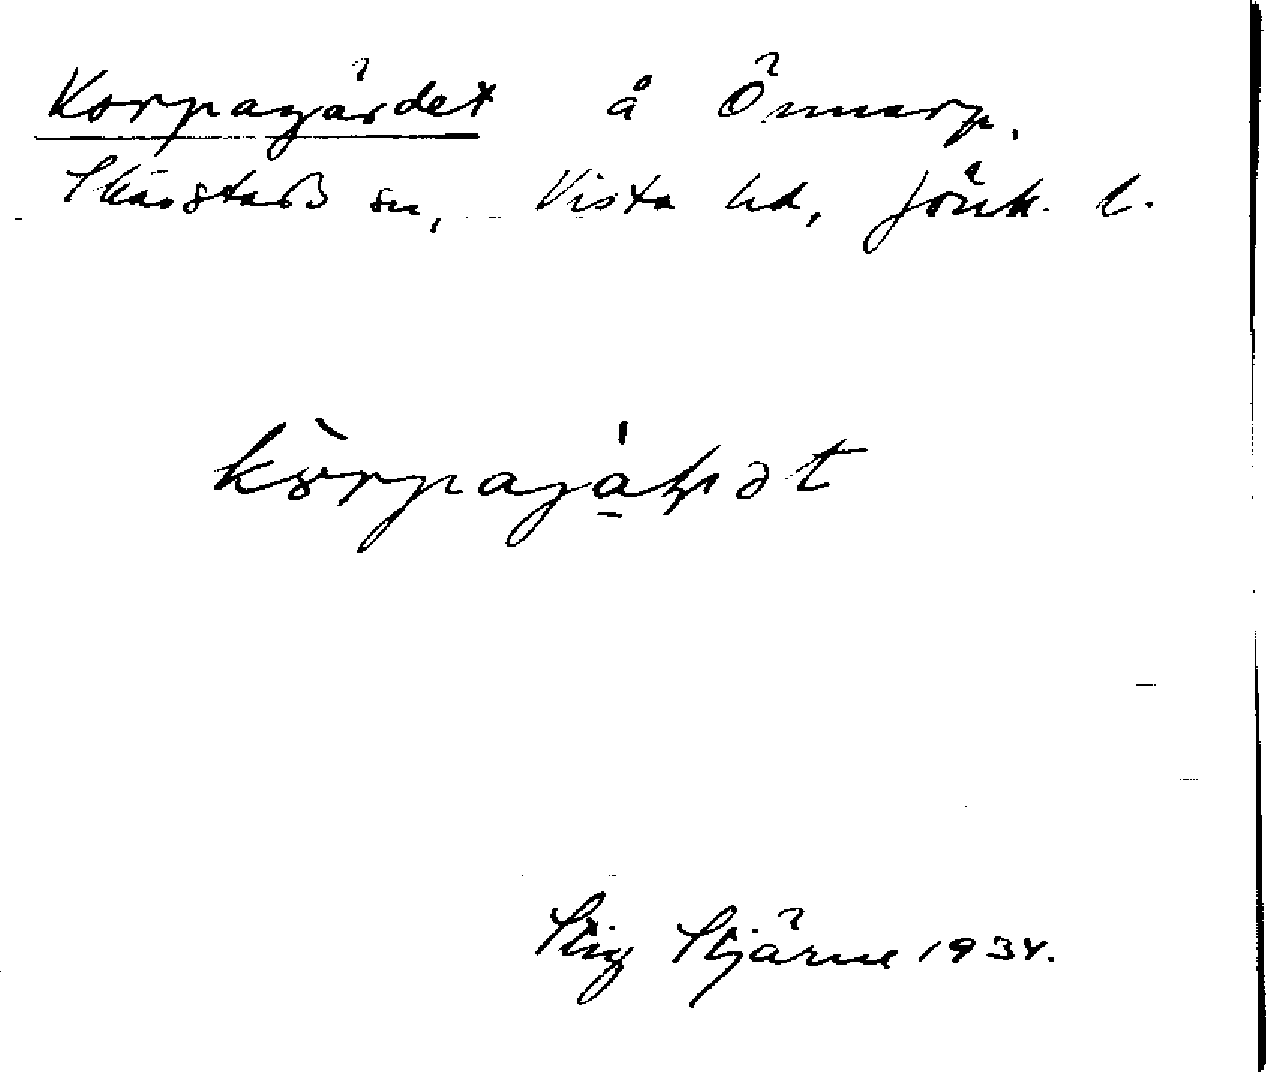 Korpagärdet å Önnarp.
Skärstads sn, Vista hd, Jönk. l.
kòrpajáḷɖət
Stig Stjärne 1934.